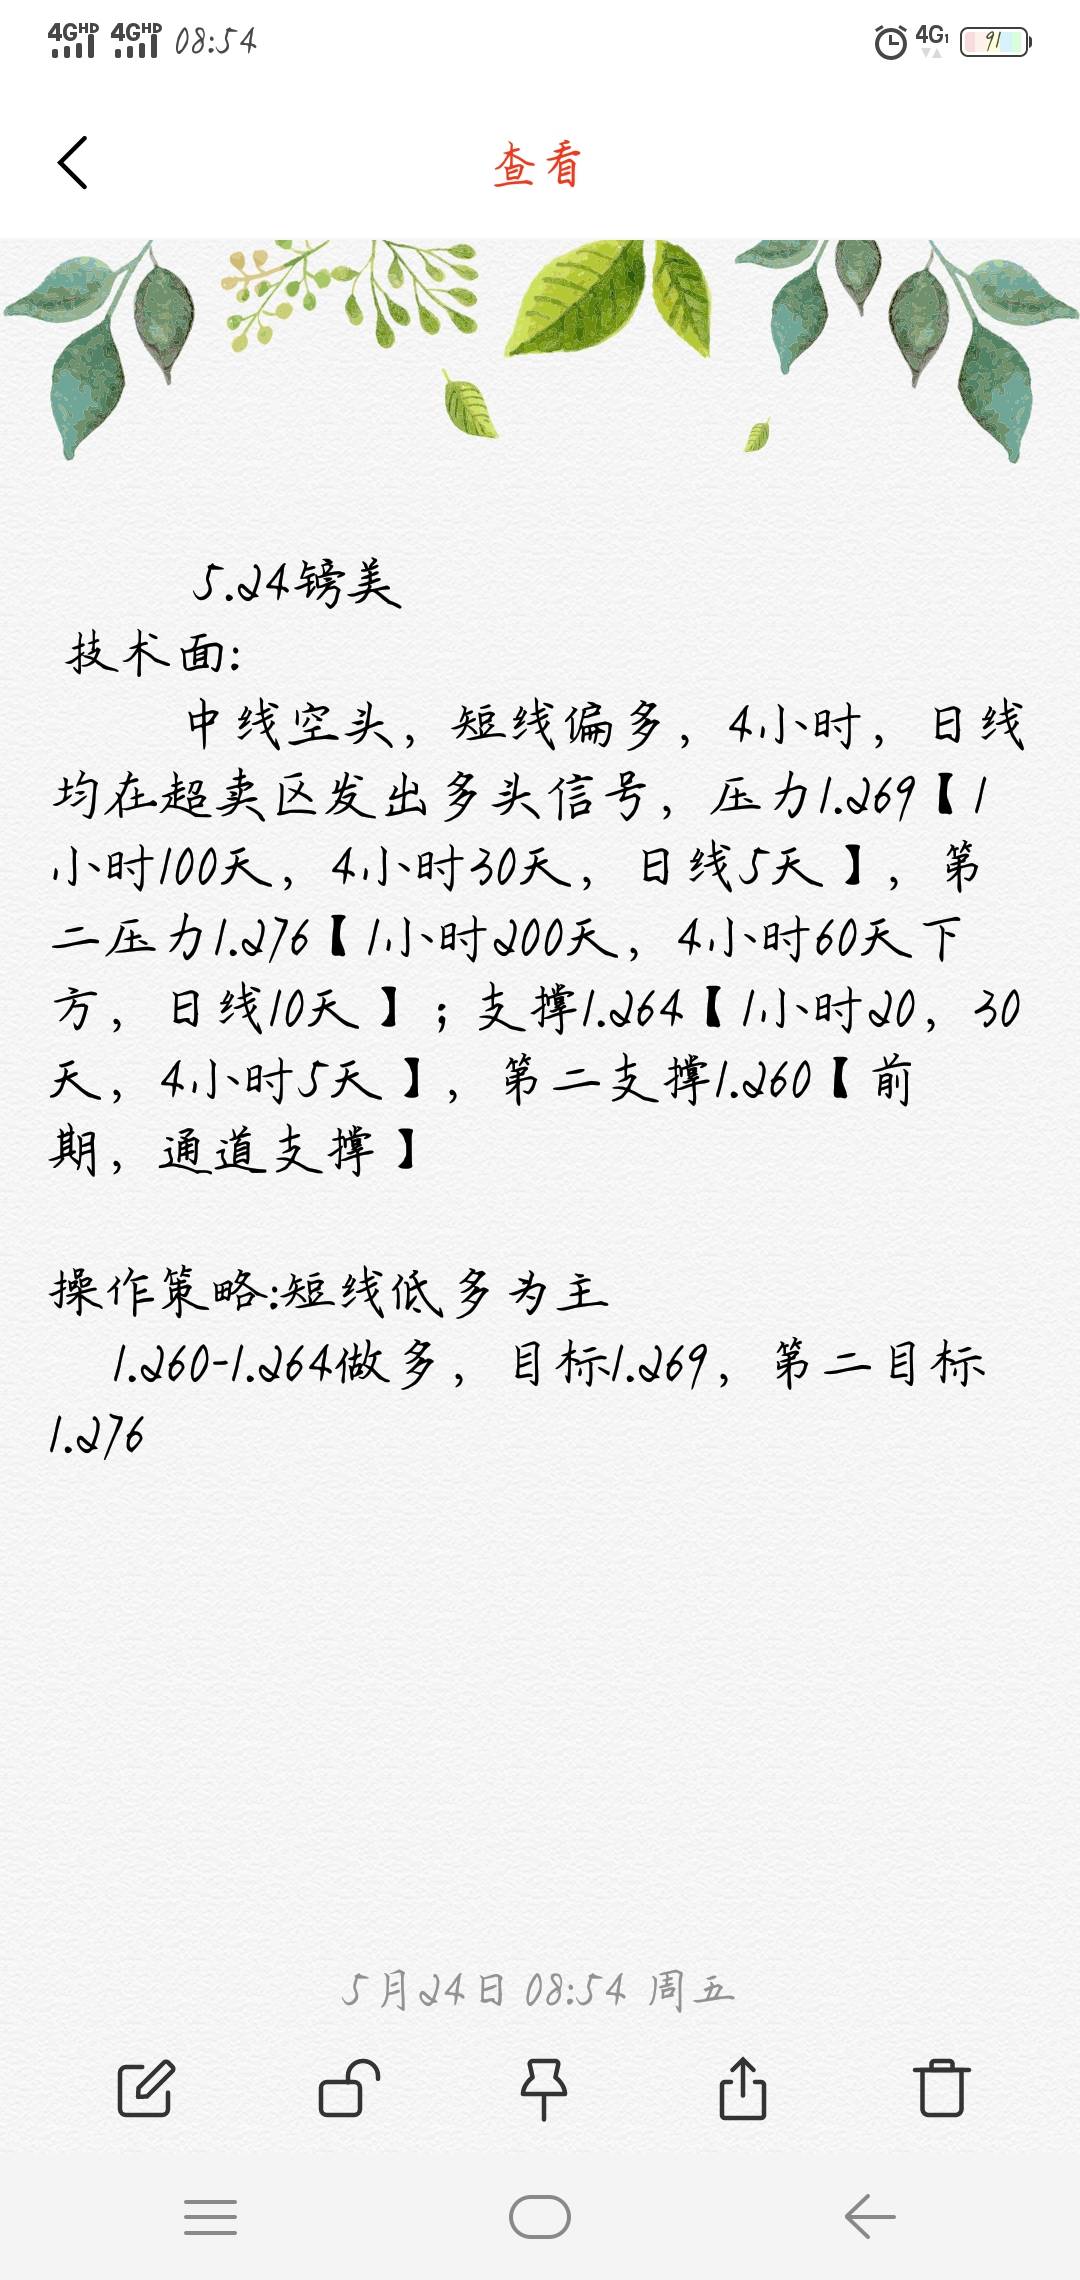 4GHD 4GHD 08:54 4G1 91
查看
5.24镑美
技术面:
中线空头，短线偏多，4小时，日线
均在超卖区发出多头信号，压力1.269【1
小时100天，4小时30天，日线5天】，第
二压力1.276【1小时200天，4小时60天下
方，日线10天】；支撑1.264【1小时20，30
天，4小时5天】，第二支撑1.260【前
期，通道支撑】
操作策略:短线低多为主
1.260-1.264做多，目标1.269，第二目标
1.276
5月24日 08:54 周五